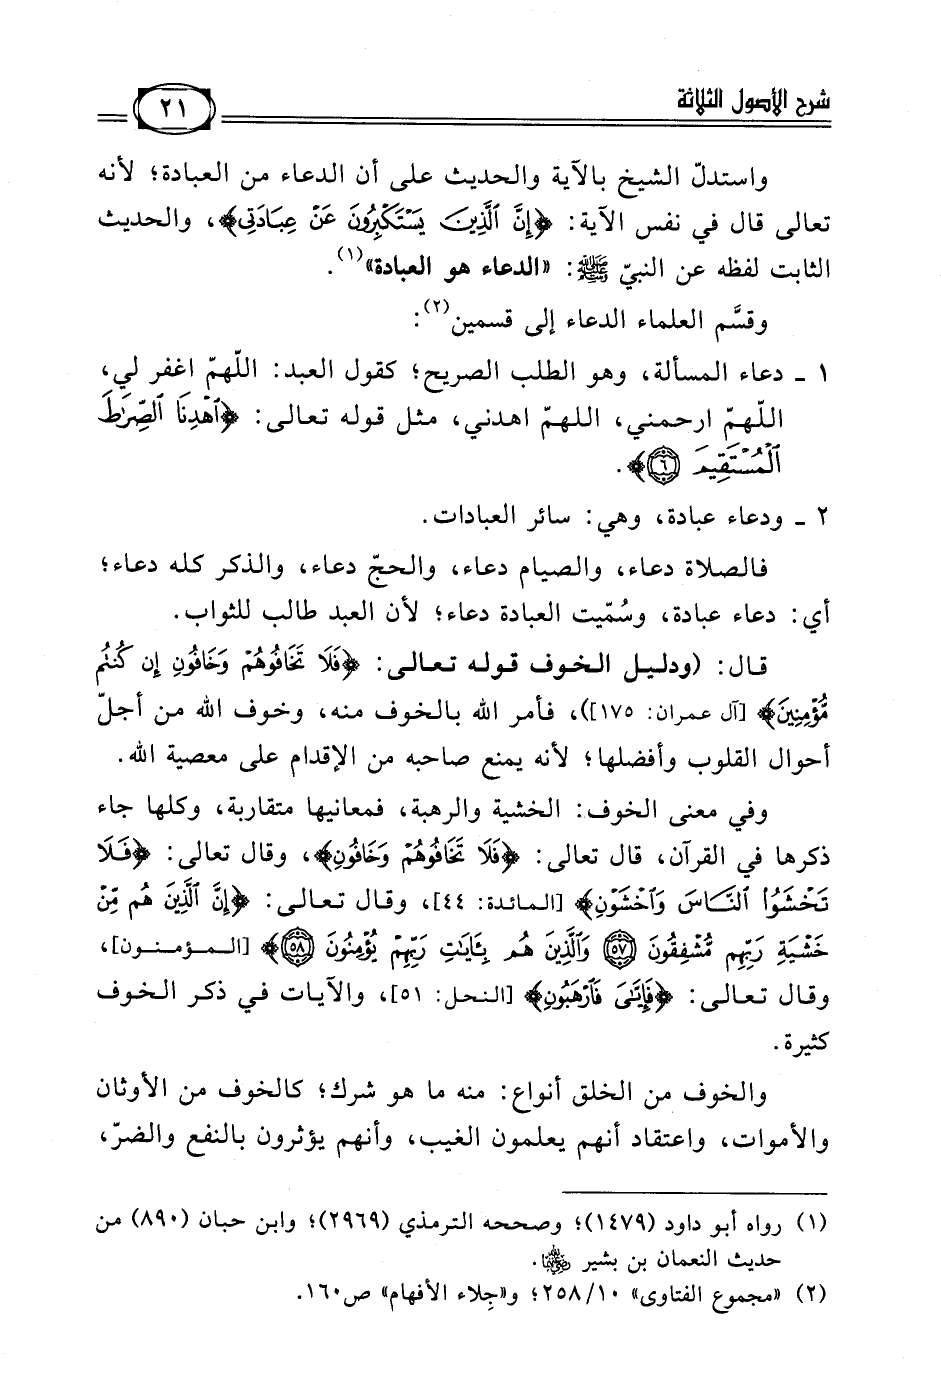 شرح الأصول الثلاثة
٢١
واستدلّ الشيخ بالآية والحديث على أن الدعاء من العبادة؛ لأنه
تعالى قال في نفس الآية: ﴿إِنَّ ٱلَّذِينَ يَسْتَكْبِرُونَ عَنْ عِبَادَتِى﴾، والحديث
الثابت لفظه عن النبيّ ﷺ: «الدعاء هو العبادة»(١).
وقسَّم العلماء الدعاء إلى قسمين(٢):
١ ـ دعاء المسألة، وهو الطلب الصريح؛ كقول العبد: اللّهمّ اغفر لي،
اللّهمّ ارحمني، اللهمّ اهدني، مثل قوله تعالى: ﴿ٱهْدِنَا ٱلصِّرَٰطَ
ٱلْمُسْتَقِيمَ ٦﴾.
٢ ـ ودعاء عبادة، وهي: سائر العبادات.
فالصلاة دعاء، والصيام دعاء، والحجّ دعاء، والذكر كله دعاء؛
أي: دعاء عبادة، وسُمّيت العبادة دعاء؛ لأن العبد طالب للثواب.
قال: (ودليل الخوف قوله تعالى: ﴿فَلَا تَخَافُوهُمْ وَخَافُونِ إِن كُنتُم
مُّؤْمِنِينَ﴾ [آل عمران: ١٧٥])، فأمر الله بالخوف منه، وخوف الله من أجلّ
أحوال القلوب وأفضلها؛ لأنه يمنع صاحبه من الإقدام على معصية الله.
وفي معنى الخوف: الخشية والرهبة، فمعانيها متقاربة، وكلها جاء
ذكرها في القرآن، قال تعالى: ﴿فَلَا تَخَافُوهُمْ وَخَافُونِ﴾، وقال تعالى: ﴿فَلَا
تَخْشَوُا۟ ٱلنَّاسَ وَٱخْشَوْنِ﴾ [المائدة: ٤٤]، وقال تعالى: ﴿إِنَّ ٱلَّذِينَ هُم مِّنْ
خَشْيَةِ رَبِّهِم مُّشْفِقُونَ ٥٧ وَٱلَّذِينَ هُم بِـَٔايَٰتِ رَبِّهِمْ يُؤْمِنُونَ ٥٨﴾ [المؤمنون]،
وقال تعالى: ﴿فَإِيَّٰىَ فَٱرْهَبُونِ﴾ [النحل: ٥١]، والآيات في ذكر الخوف
كثيرة.
والخوف من الخلق أنواع: منه ما هو شرك؛ كالخوف من الأوثان
والأموات، واعتقاد أنهم يعلمون الغيب، وأنهم يؤثرون بالنفع والضرّ،
(١) رواه أبو داود (١٤٧٩)؛ وصححه الترمذي (٢٩٦٩)؛ وابن حبان (٨٩٠) من
حديث النعمان بن بشير رضي الله عنهما.
(٢) «مجموع الفتاوى» ١٠/ ٢٥٨؛ و«جِلاء الأفهام» ص١٦٠.